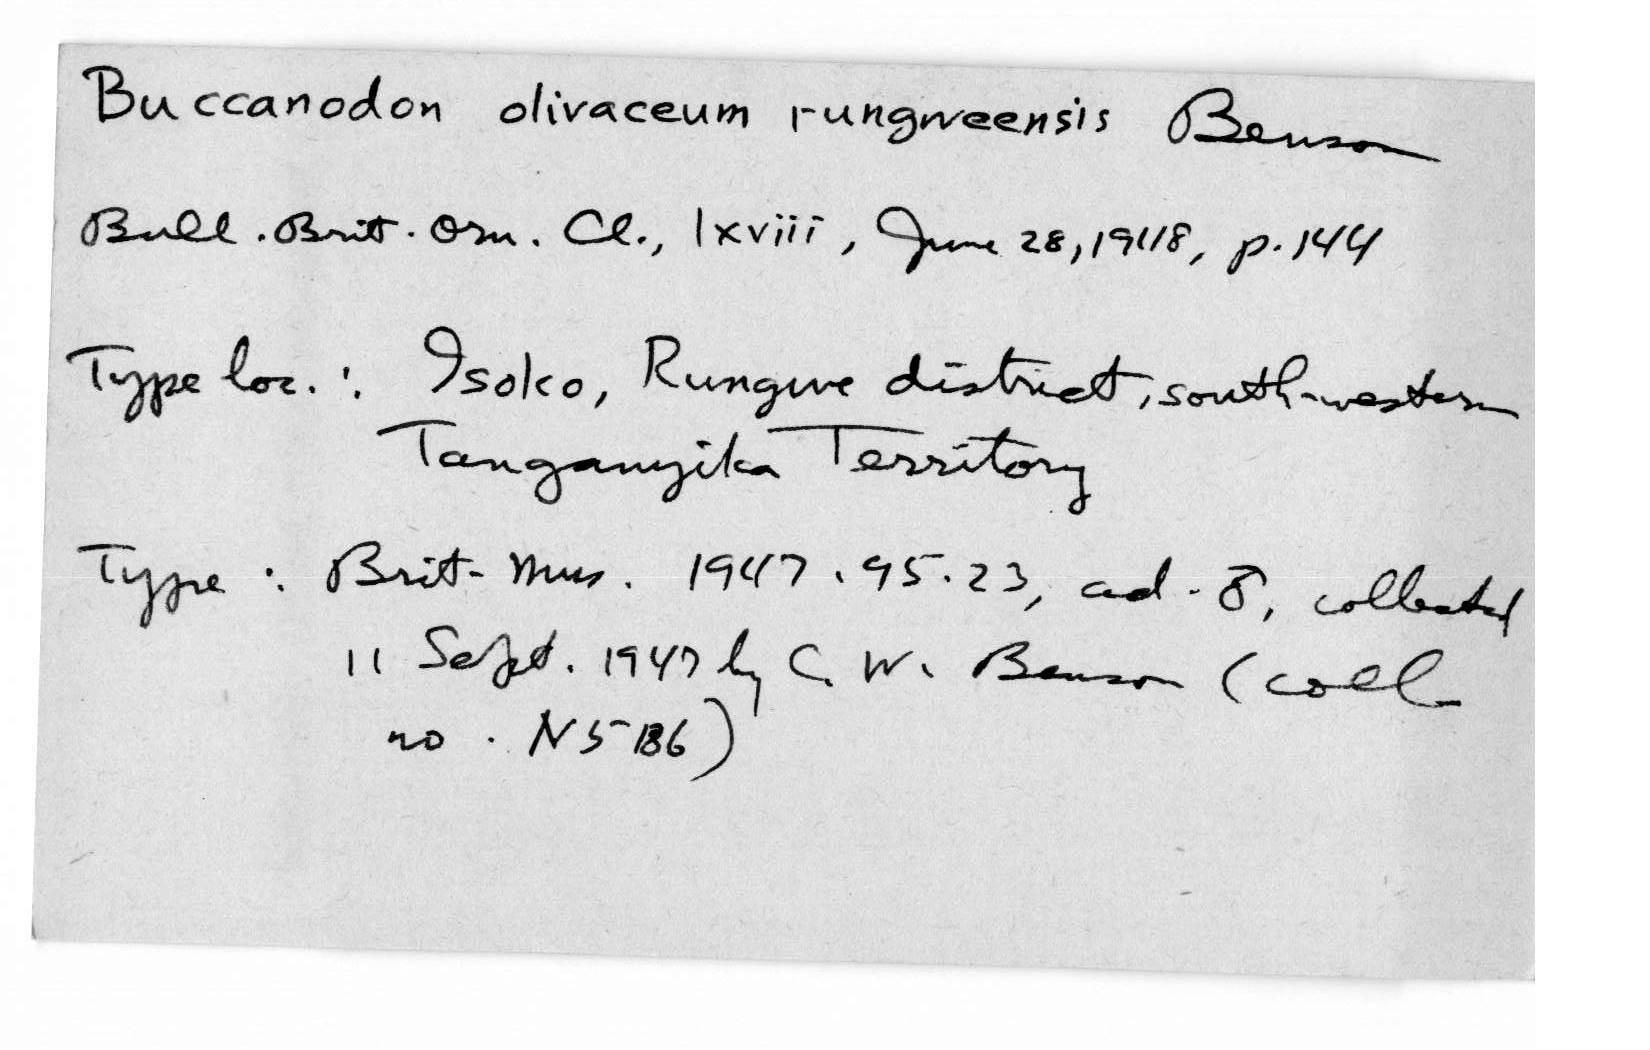 Buccanodon olivaceum rungweensis Benson
Bull. Brit. Orn. Cl., lxviii, June 28, 1948, p. 144
Type loc.: Isoko, Rungwe district, south-western
Tanganyika Territory
Type: Brit. Mus. 1947.95.23, ad. ♂, collected
11 Sept. 1947 by C. W. Benson (coll.
no. N5186)